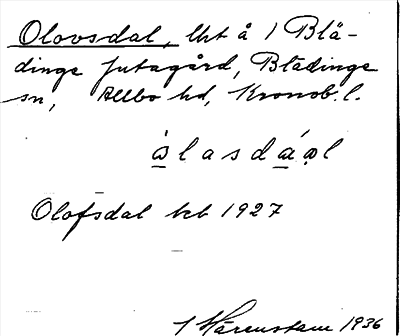 Olovsdal, lht å 1 Blä-
dinge Jutagård, Blädinge
sn, Allbo hd, Kronob. l.
òlasdáol
Olofsdal kb 1927
Härenstam 1936